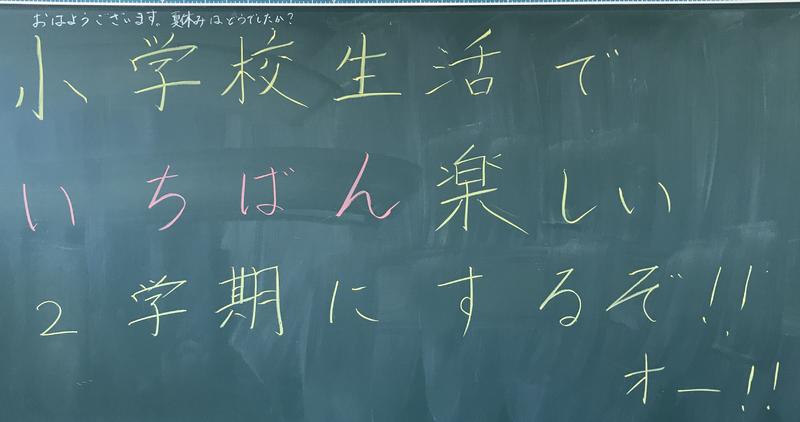 おはようございます。夏休みはどうでしたか？
小学校生活で
いちばん楽しい
2学期にするぞ!!
オー!!